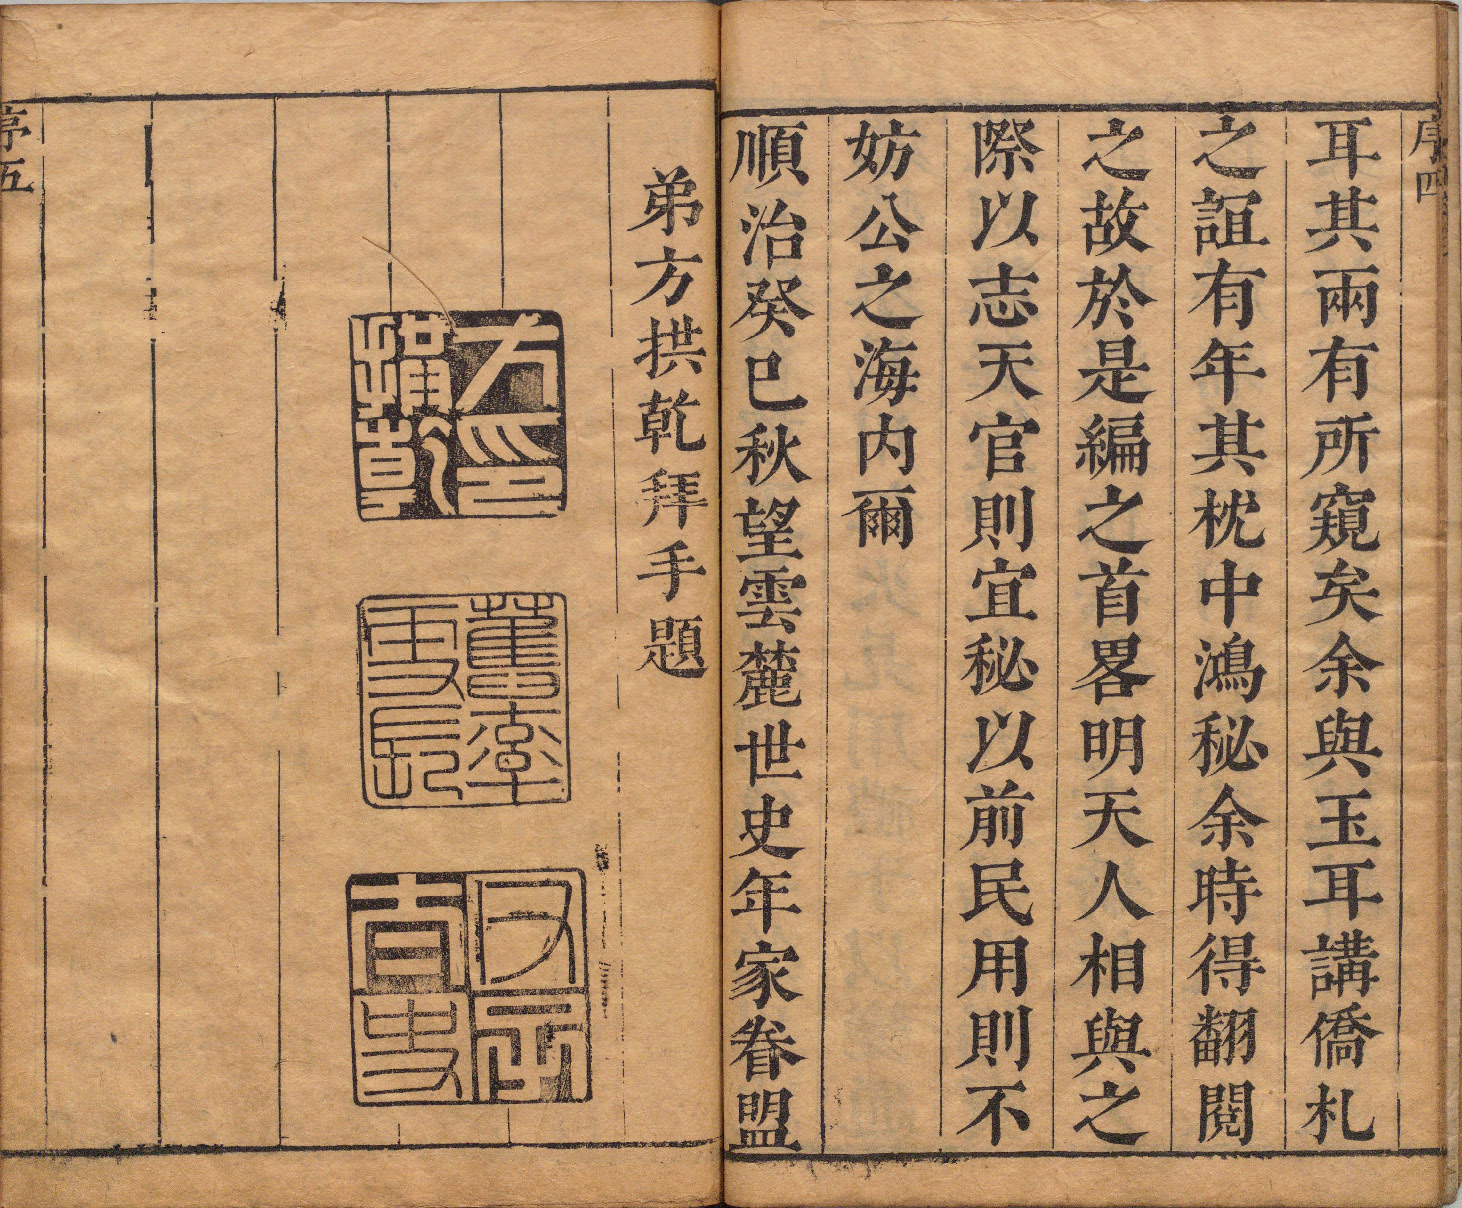 序四
耳其兩有所窺矣余與玉耳講僑札
之誼有年其枕中鴻秘余時得翻閱
之故於是編之首畧明天人相與之
際以志天官則宜秘以前民用則不
妨公之海内爾
順治癸巳秋望雲麓世史年家眷盟
弟方拱乾拜手題
方拱乾印
序五